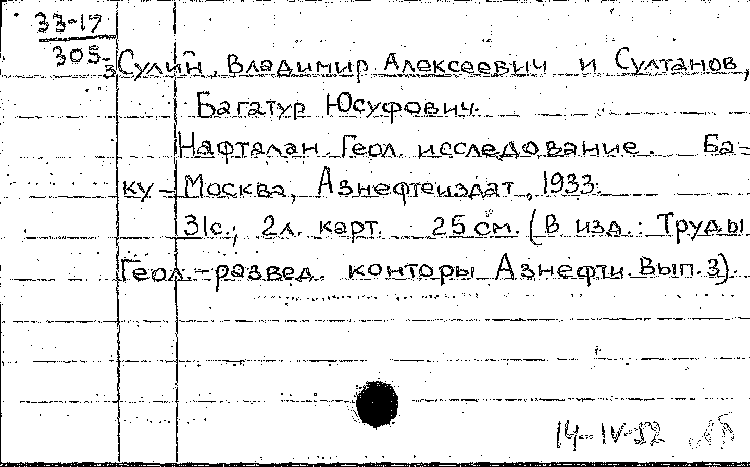 33-17
305-3
Сулин, Владимир Алексеевич и Султанов,
Багатур Юсуфович.
Нафталан. Геол. исследование. Ба-
ку - Москва, Азнефтеиздат, 1933.
31с.; 2л. карт. 25 см. (В изд.: Труды
Геол.-развед. конторы Азнефти. Вып. 3).
14-IV-52